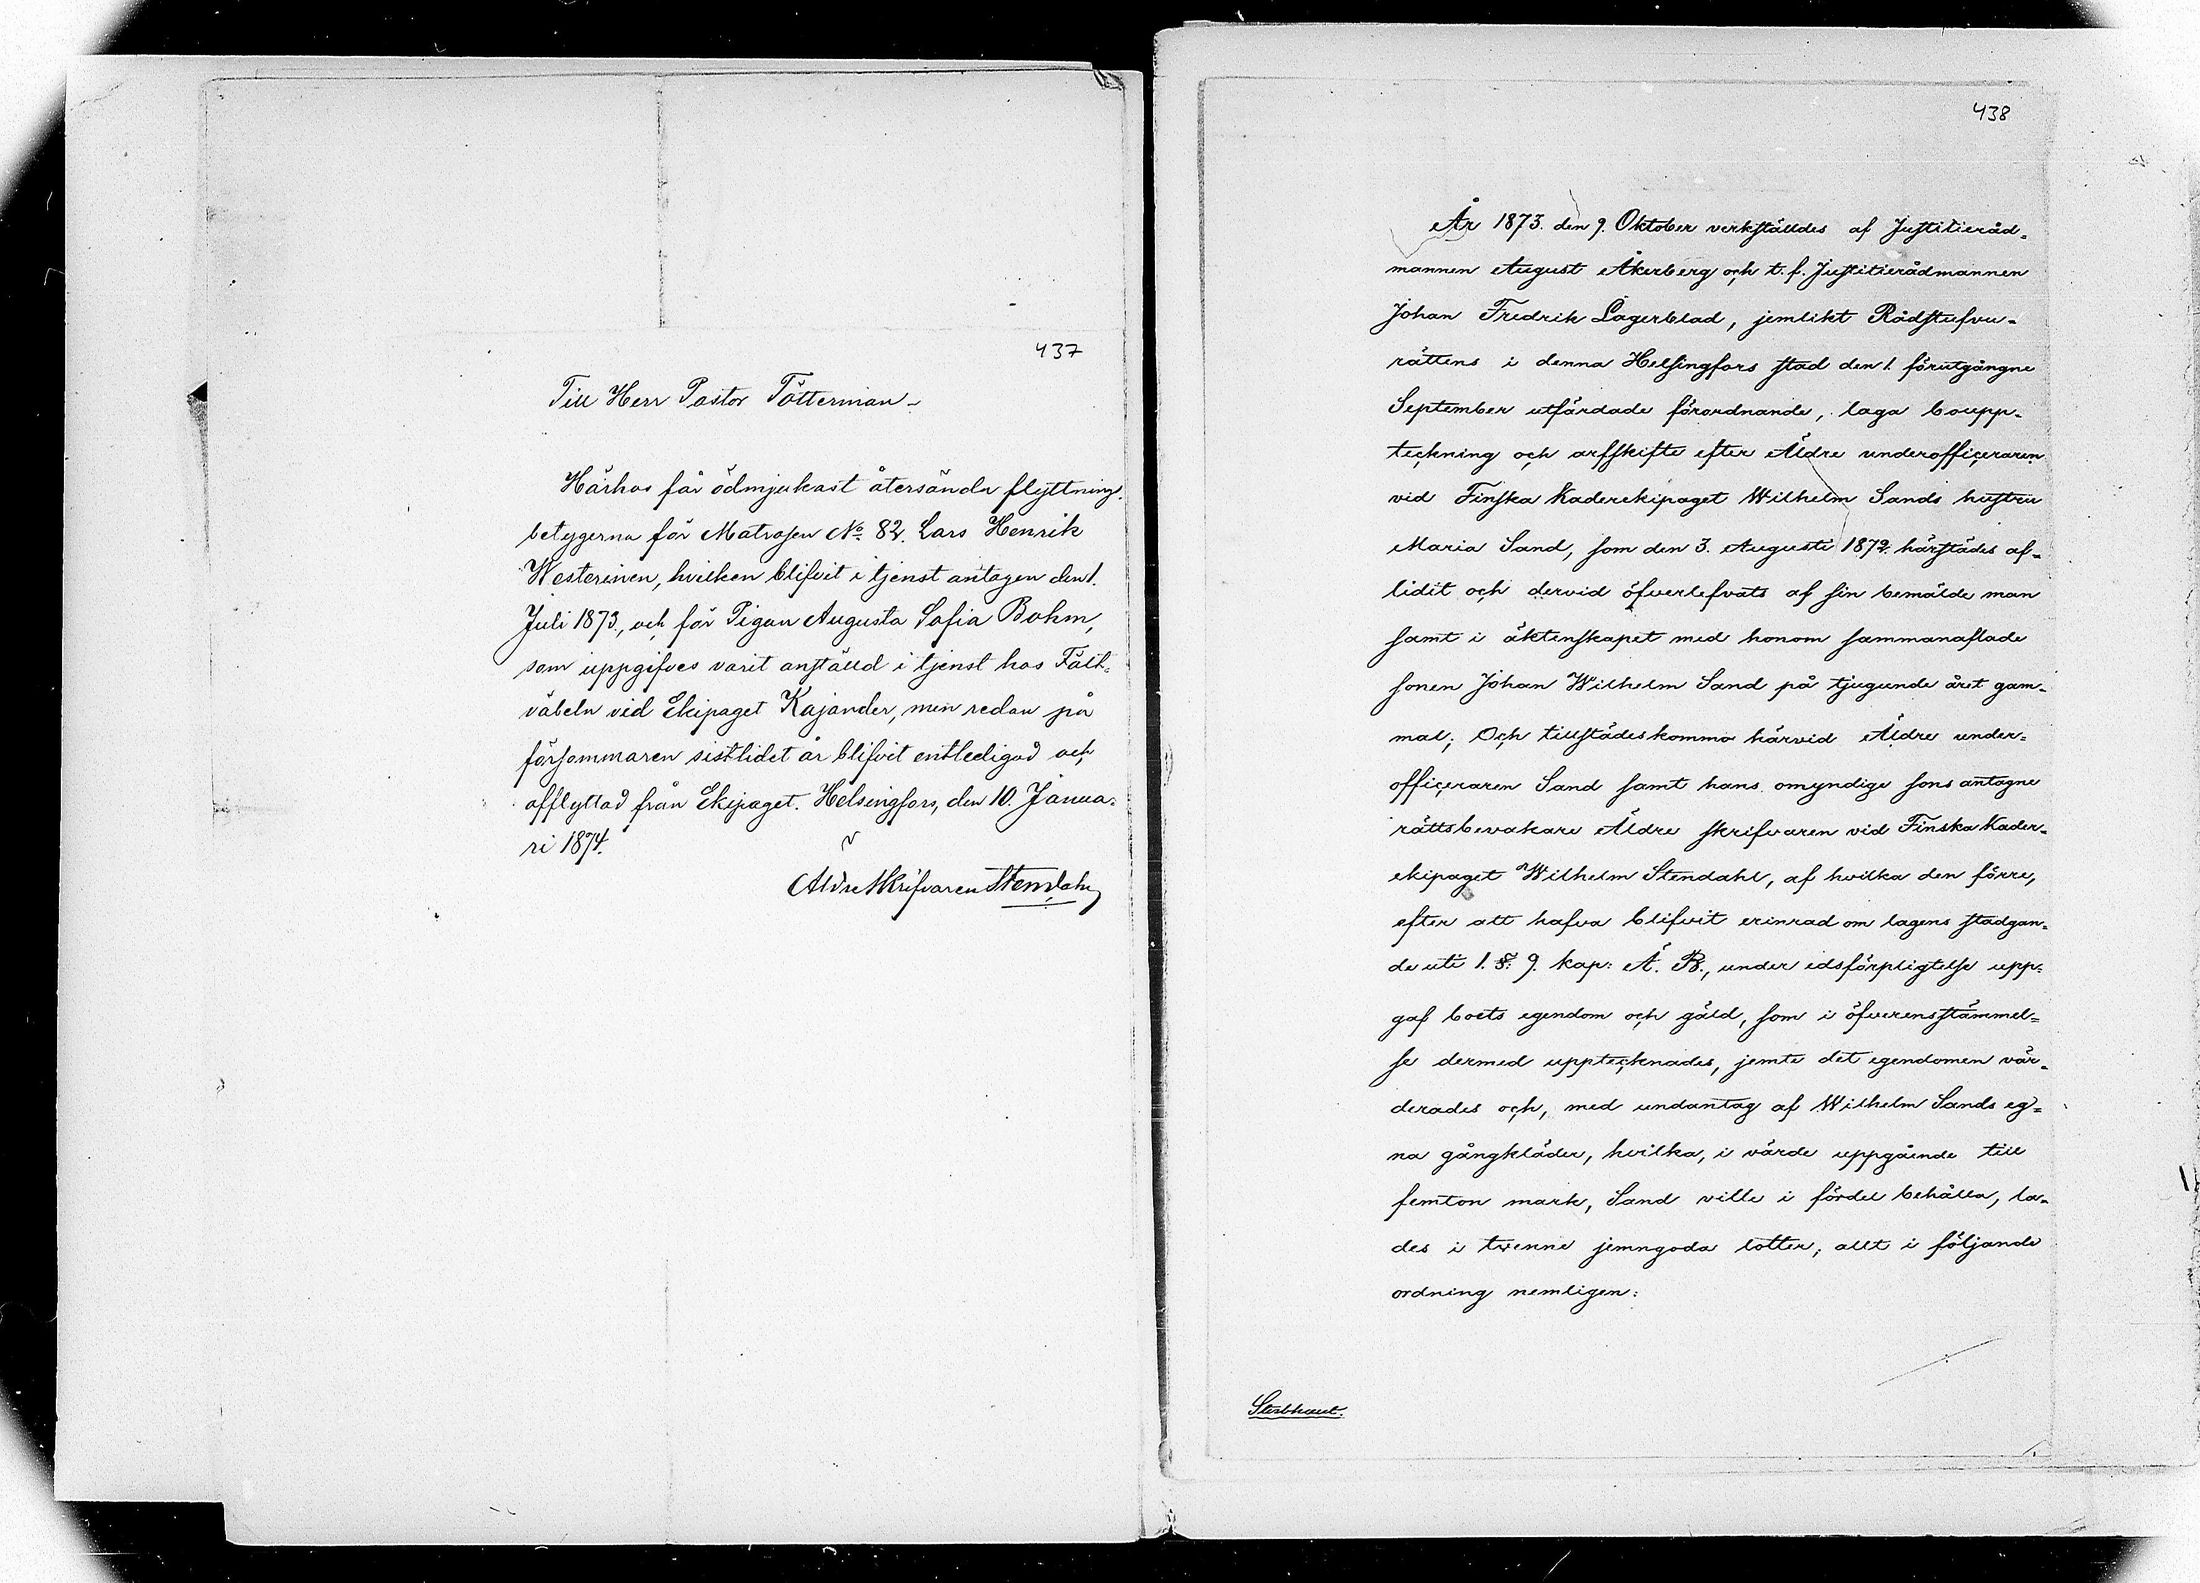 437
Till Herr Pastor Tötterman
Härhos får ödmjukast återsända flyttnings-
betygerna för Matrosen No 82. Lars Henrik
Westerinen, hvilken blifvit i tjenst antagen den 1.
Juli 1873, och för Pigan Augusta Sofia Bohm,
som uppgifves varit anställd i tjenst hos Fält-
väbeln vid Ekipaget Kajander, men redan på
försommaren sistlidet år blifvit entledigad och
afflyttad från Ekipaget. Helsingfors, den 10. Janua-
ri 1874.
Äldre Skrifvaren Stendahl
438
År 1873. den 9. Oktober verkställdes af Justitieråd-
mannen August Åkerberg och t. f. Justitierådmannen
Johan Fredrik Lagerblad, jemlikt Rådstufvu-
rättens i denna Helsingfors stad den 1. förutgångne
September utfärdade förordnande, laga boupp-
teckning och arfskifte efter Äldre underofficeraren
vid Finska Kaderekipaget Wilhelm Sands hustru
Maria Sand, som den 3. Augusti 1872. härstädes af-
lidit och dervid öfverlefvats af sin bemälde man
samt i äktenskapet med honom sammanaflade
sonen Johan Wilhelm Sand på tjugunde året gam-
mal; Och tillstädeskommo härvid Äldre under-
officeraren Sand samt hans omyndige sons antagne
rättsbevakare Äldre skrifvaren vid Finska Kader-
ekipaget Wilhelm Stendahl, af hvilka den förre,
efter att hafva blifvit erinrad om lagens stadgan-
de uti 1. §. 9. kap: Ä. B., under edsförpligtelse upp-
gaf boets egendom och gäld, som i öfverensstämmel-
se dermed upptecknades, jemte det egendomen vär-
derades och, med undantag af Wilhelm Sands eg-
na gångkläder, hvilka, i värde uppgående till
femton mark, Sand ville i fördel behålla, la-
des i tvenne jemngoda lotter; allt i följande
ordning nemligen:
Sterbhuset: